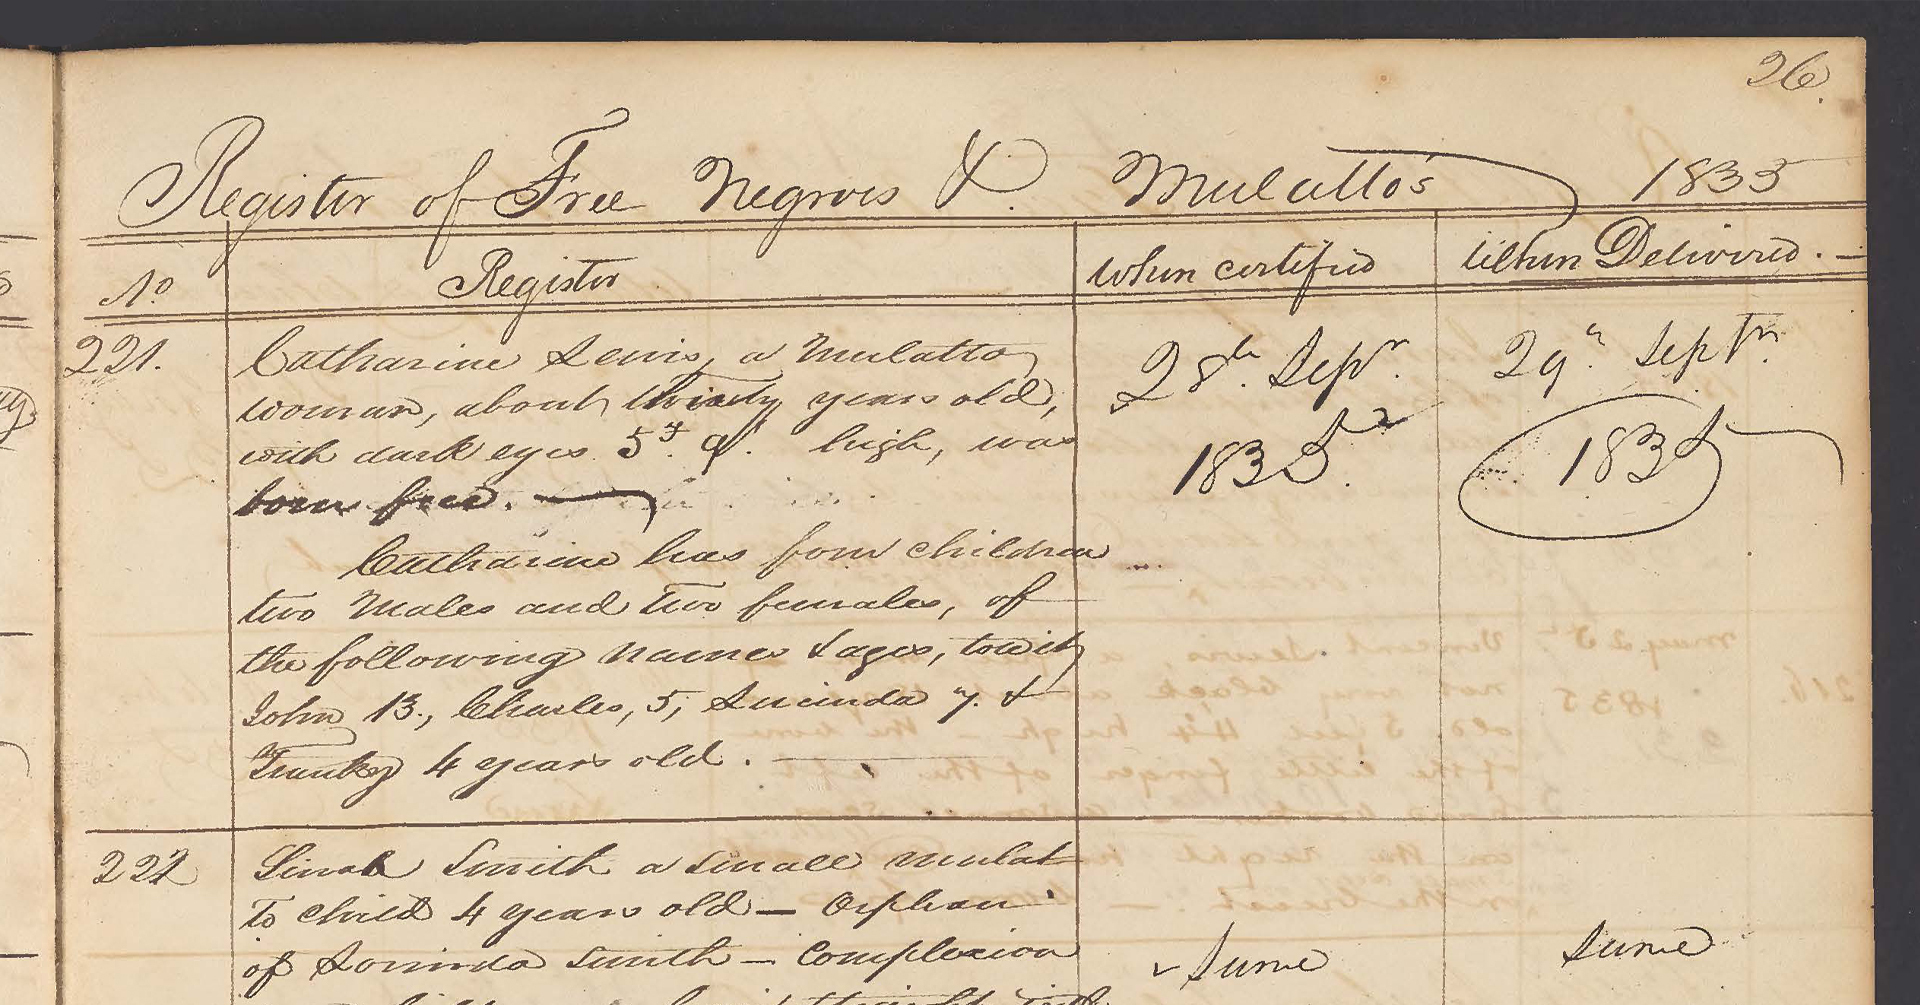 26.
Register of Free Negroes & Mulatto's 1835
No Register When certified When Delivered. —
221. Catharine Lewis, a Mulatto 28th. Sepr. 29th Septr.
woman, about thirty years old,
with dark eyes 5f. 9i. high, was 1835. 1835
born free. —
Catharine has four children
two Males and two females, of
the following names & ages, towit,
John 13., Charles, 5, Lucinda 7. &
Franky 4 years old. —
222 Sinah Smith a small mulat
to child 4 years old — Orphan
of Lorinda Smith — Complexion Same Same